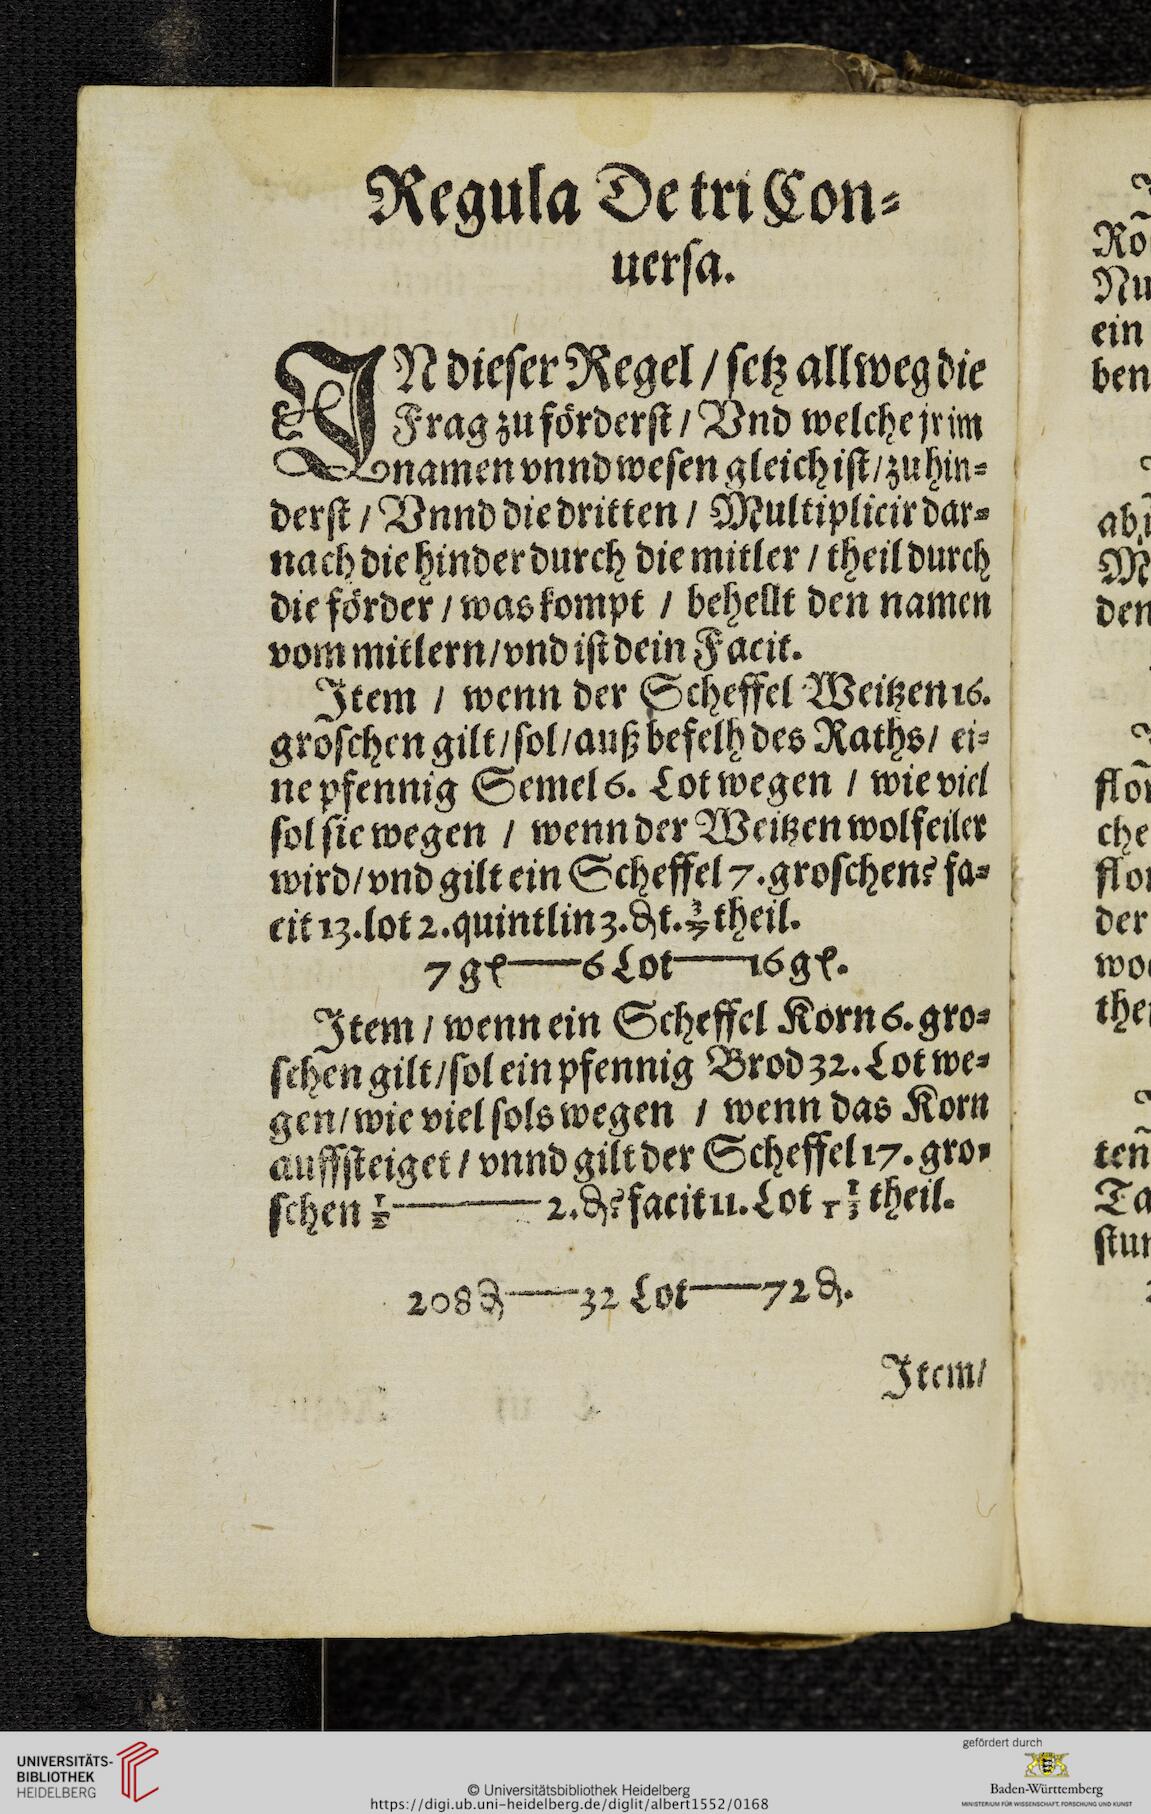 Regula De tri Con⸗
uersa.
IN dieser Regel / setz allweg die
Frag zu förderst / Vnd welche jr im
namen vnnd wesen gleich ist / zu hin⸗
derst / Vnnd die dritten / Multiplicir dar⸗
nach die hinder durch die mitler / theil durch
die förder / was kompt / behellt den namen
vom mitlern / vnd ist dein Facit.
Item / wenn der Scheffel Weitzen 16.
groschen gilt / sol / auß befelh des Raths / ei⸗
ne pfennig Semel 6. Lot wegen / wie viel
sol sie wegen / wenn der Weitzen wolfeiler
wird / vnd gilt ein Scheffel 7. groschen? fa⸗
cit 13. lot 2. quintlin 3. ₰t. 3/7 theil.
7 gl — 6 Lot — 16 gl.
Item / wenn ein Scheffel Korn 6. gro⸗
schen gilt / sol ein pfennig Brod 32. Lot we⸗
gen / wie viel sols wegen / wenn das Korn
auffsteiget / vnnd gilt der Scheffel 17. gro⸗
schen 1/2 — 2. ₰? facit 11. Lot 1/13 theil.
208 ₰ — 32 Lot — 72 ₰.
Item /
Nu
ein
ben
den
che
der
the
ten
Ta
UNIVERSITÄTS-
BIBLIOTHEK
HEIDELBERG
© Universitätsbibliothek Heidelberg
https://digi.ub.uni-heidelberg.de/diglit/albert1552/0168
gefördert durch
Baden-Württemberg
MINISTERIUM FÜR WISSENSCHAFT, FORSCHUNG UND KUNST